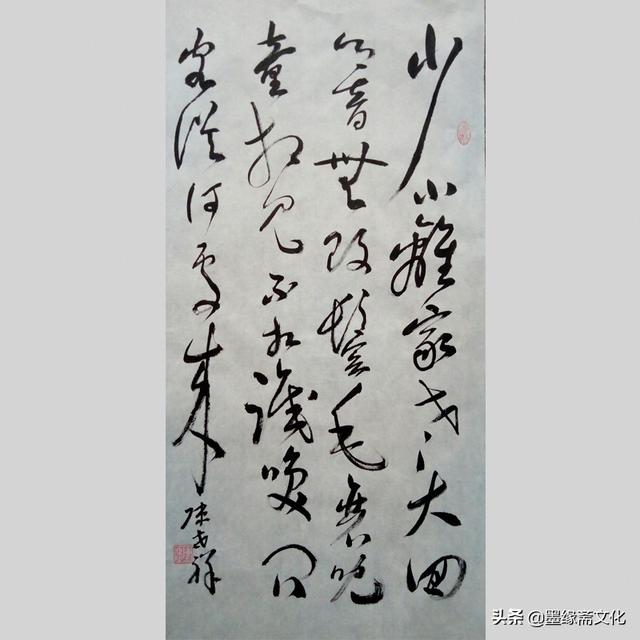 少小離家老大回
乡音無改鬢毛衰兒
童相見不相識咲问
客從何處來
头条 @墨缘斋文化